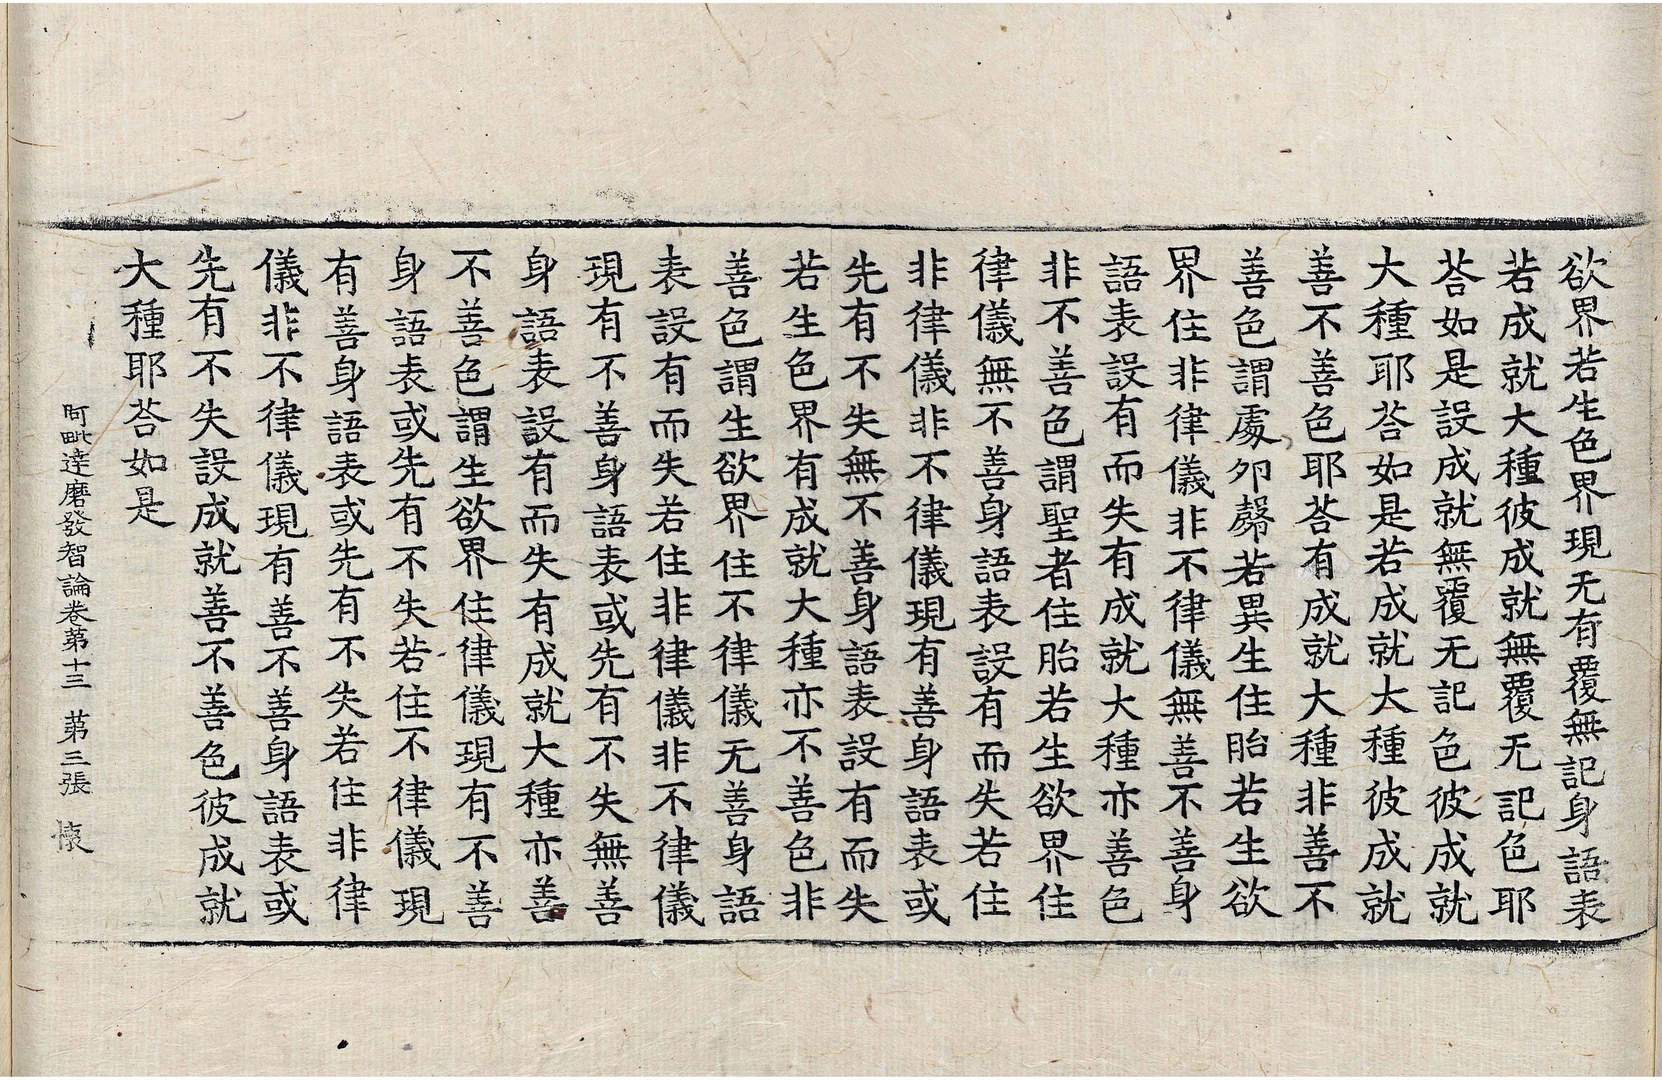 欲界若生色界現无有覆無記身語表
若成就大種彼成就無覆无記色耶
荅如是設成就無覆无記色彼成就
大種耶荅如是若成就大種彼成就
善不善色耶荅有成就大種非善不
善色謂處卵㲉若異生住胎若生欲
界住非律儀非不律儀無善不善身
語表設有而失有成就大種亦善色
非不善色謂聖者住胎若生欲界住
律儀無不善身語表設有而失若住
非律儀非不律儀現有善身語表或
先有不失無不善身語表設有而失
若生色界有成就大種亦不善色非
善色謂生欲界住不律儀无善身語
表設有而失若住非律儀非不律儀
現有不善身語表或先有不失無善
身語表設有而失有成就大種亦善
不善色謂生欲界住律儀現有不善
身語表或先有不失若住不律儀現
有善身語表或先有不失若住非律
儀非不律儀現有善不善身語表或
先有不失設成就善不善色彼成就
大種耶荅如是
阿毗達磨發智論卷第十三 第三張 懷